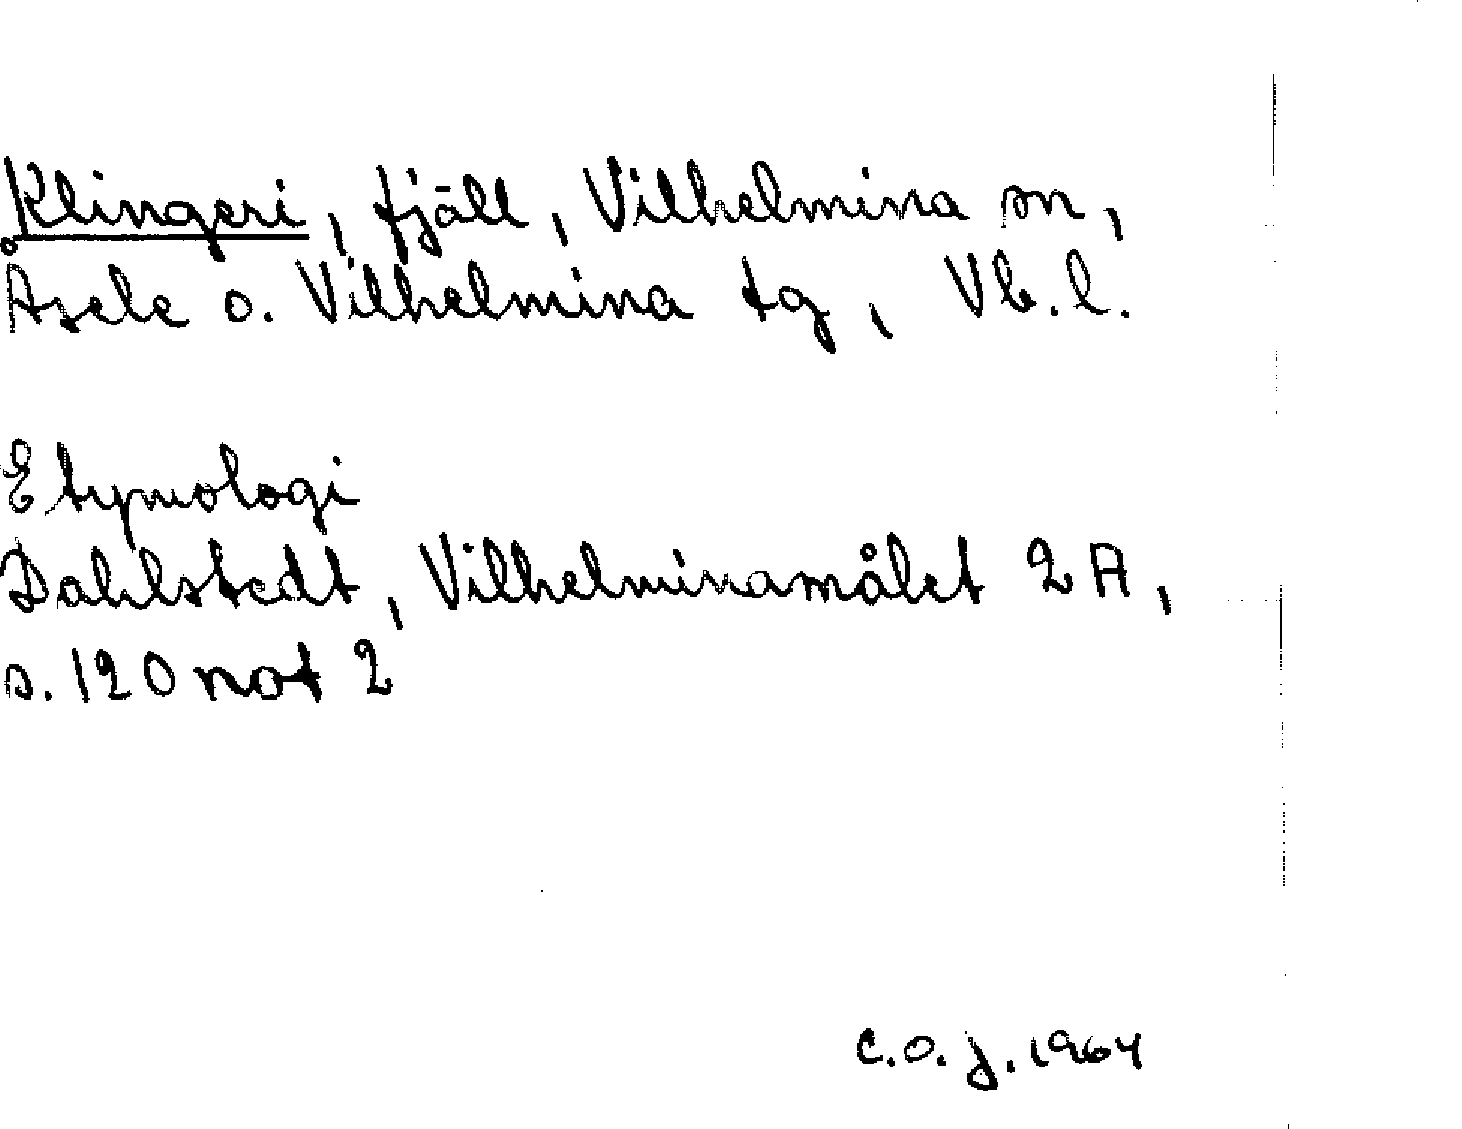 Klingeri, fjäll, Vilhelmina sn,
Åsele o. Vilhelmina tg, Vb. l.
Etymologi
Dahlstedt, Vilhelminamålet 2A,
s. 120 not 2
C.O.J. 1964